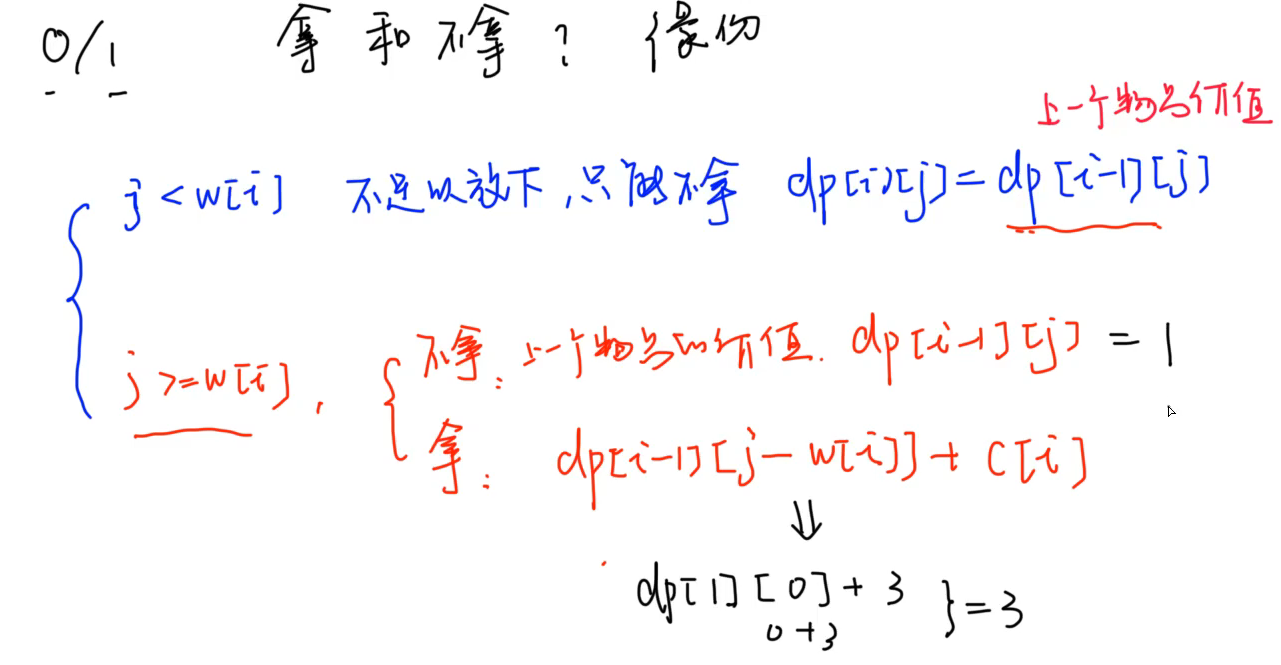 0/1 拿和不拿? 
上一个物品价值
j < w[i] 不足以放下,只能不拿 dp[i][j] = dp[i-1][j]
j >= w[i], 不拿: 上一个物品的价值. dp[i-1][j] = 1
拿: dp[i-1][j - w[i]] + c[i]
⇓
dp[1][0] + 3 } = 3
0 + 3